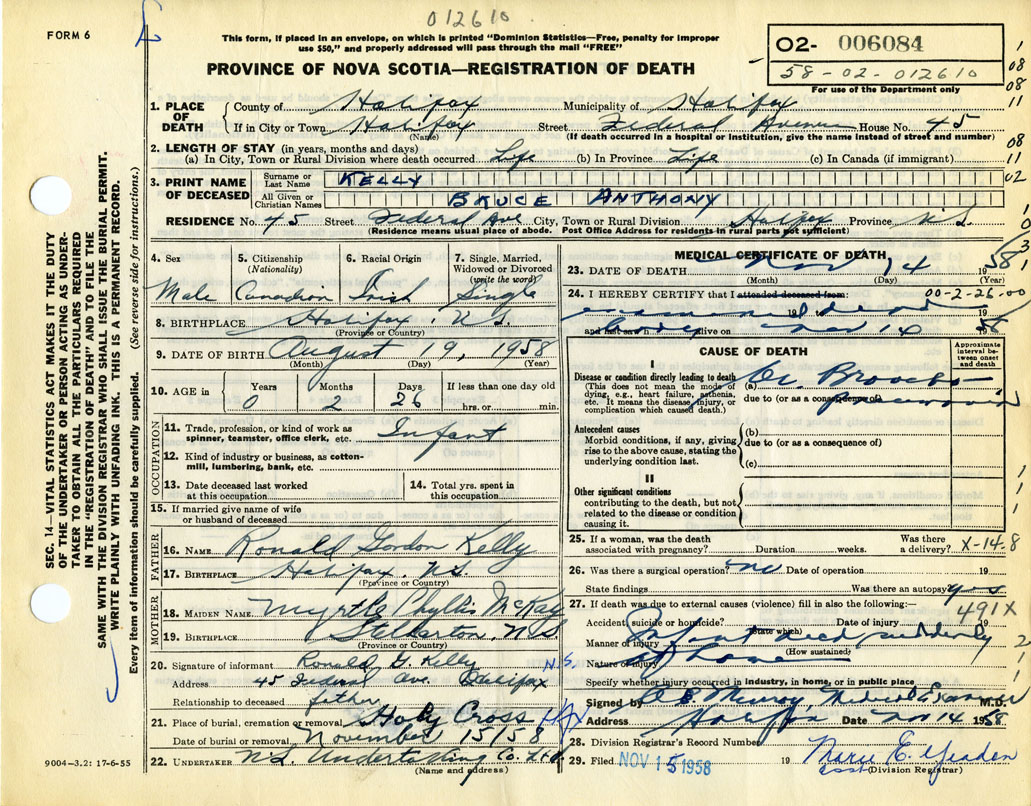 012610.
FORM 6
This form, if placed in an envelope, on which is printed "Dominion Statistics—Free, penalty for improper
use $50," and properly addressed will pass through the mail "FREE"
PROVINCE OF NOVA SCOTIA—REGISTRATION OF DEATH
02- 006084
58-02-012610
For use of the Department only
1. PLACE OF DEATH County of Halifax Municipality of Halifax
If in City or Town Halifax Street Federal Avenue House No. 45
(Name) (If death occurred in a hospital or institution, give the name instead of street and number)
2. LENGTH OF STAY (in years, months and days)
(a) In City, Town or Rural Division where death occurred Life (b) In Province Life (c) In Canada (if immigrant)
3. PRINT NAME OF DECEASED Surname or Last Name KELLY
All Given or Christian Names BRUCE ANTHONY
RESIDENCE No. 45 Street Federal Ave City, Town or Rural Division Halifax Province N.S.
(Residence means usual place of abode. Post Office Address for residents in rural parts not sufficient)
4. Sex 5. Citizenship (Nationality) 6. Racial Origin 7. Single, Married, Widowed or Divorced (write the word)
Male Canadian Irish Single
8. BIRTHPLACE Halifax, N.S.
(Province or Country)
9. DATE OF BIRTH August 19, 1958
(Month) (Day) (Year)
10. AGE in Years Months Days If less than one day old
0 2 26 hrs. or min.
OCCUPATION
11. Trade, profession, or kind of work as
spinner, teamster, office clerk, etc. Infant
12. Kind of industry or business, as cotton-
mill, lumbering, bank, etc.
13. Date deceased last worked
at this occupation
14. Total yrs. spent in
this occupation
15. If married give name of wife
or husband of deceased
FATHER
16. NAME Ronald Gordon Kelly
17. BIRTHPLACE Halifax, N.S.
(Province or Country)
MOTHER
18. MAIDEN NAME Myrtle Phyllis McKay
19. BIRTHPLACE Stellarton, N.S.
(Province or Country)
20. Signature of informant Ronald G. Kelly
Address 45 Federal Ave. Halifax N.S.
Relationship to deceased father
21. Place of burial, cremation or removal Holy Cross Hfx
Date of burial or removal November 15/58
22. UNDERTAKER N.S. Undertaking Co. Ltd
(Name and address)
9004—3.2: 17-6-55
MEDICAL CERTIFICATE OF DEATH
23. DATE OF DEATH Nov 14 1958
(Month) (Day) (Year)
24. I HEREBY CERTIFY that I attended deceased from: 00-2-26-00
examined dead 19
body
and last saw h alive on Nov 14 58
CAUSE OF DEATH
Approximate interval between onset and death
I
Disease or condition directly leading to death
(This does not mean the mode of
dying, e.g., heart failure, asthenia,
etc. It means the disease, injury, or
complication which caused death.)
(a) Ac. Broncho
pneumonia
due to (or as a consequence of)
Antecedent causes
Morbid conditions, if any, giving
rise to the above cause, stating the
underlying condition last.
(b)
due to (or as a consequence of)
(c)
II
Other significant conditions
contributing to the death, but not
related to the disease or condition
causing it.
25. If a woman, was the death
associated with pregnancy? Duration weeks. Was there
a delivery? X-14-8
26. Was there a surgical operation? no Date of operation 19
State findings Was there an autopsy? yes
27. If death was due to external causes (violence) fill in also the following:— 491X
Accident, suicide or homicide? Date of injury 19
(State which)
Manner of injury Infant died suddenly
(How sustained)
Nature of injury at home
Specify whether injury occurred in industry, in home, or in public place
Signed by Murray, Medical Examiner M.D.
Address Halifax Date Nov 14 1958
28. Division Registrar's Record Number
29. Filed NOV 15 1958 Marie E. Yeadon
(Division Registrar)
SEC. 14—VITAL STATISTICS ACT MAKES IT THE DUTY
OF THE UNDERTAKER OR PERSON ACTING AS UNDER-
TAKER TO OBTAIN ALL THE PARTICULARS REQUIRED
IN THE "REGISTRATION OF DEATH" AND TO FILE THE
SAME WITH THE DIVISION REGISTRAR WHO SHALL ISSUE THE BURIAL PERMIT.
WRITE PLAINLY WITH UNFADING INK. THIS IS A PERMANENT RECORD.
Every item of information should be carefully supplied. (See reverse side for instructions.)
1
08
08
11
08
11
02